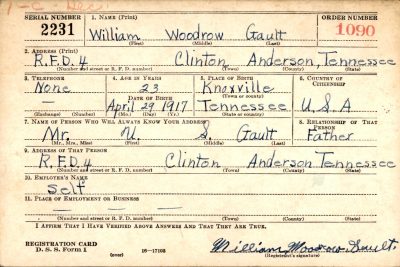 1-C Dec
SERIAL NUMBER 1. NAME (Print) ORDER NUMBER
2231 William Woodrow Gault 1090
(First) (Middle) (Last)
2. ADDRESS (Print)
R.F.D. 4 Clinton Anderson, Tennessee
(Number and street or R. F. D. number) (Town) (County) (State)
3. TELEPHONE 4. AGE IN YEARS 5. PLACE OF BIRTH 6. COUNTRY OF CITIZENSHIP
None 23 Knoxville
DATE OF BIRTH (Town or county)
— April 29 1917 Tennessee U.S.A
(Exchange) (Number) (Mo.) (Day) (Yr.) (State or country)
7. NAME OF PERSON WHO WILL ALWAYS KNOW YOUR ADDRESS 8. RELATIONSHIP OF THAT PERSON
Mr. U. S. Gault Father
(Mr., Mrs., Miss) (First) (Middle) (Last)
9. ADDRESS OF THAT PERSON
R.F.D. 4 Clinton Anderson Tennessee
(Number and street or R. F. D. number) (Town) (County) (State)
10. EMPLOYER'S NAME
Self
11. PLACE OF EMPLOYMENT OR BUSINESS
— —
(Number and street or R. F. D. number) (Town) (County) (State)
I AFFIRM THAT I HAVE VERIFIED ABOVE ANSWERS AND THAT THEY ARE TRUE.
REGISTRATION CARD
D. S. S. Form 1 16—17105 William Woodrow Gault
(over) (Registrant's signature)